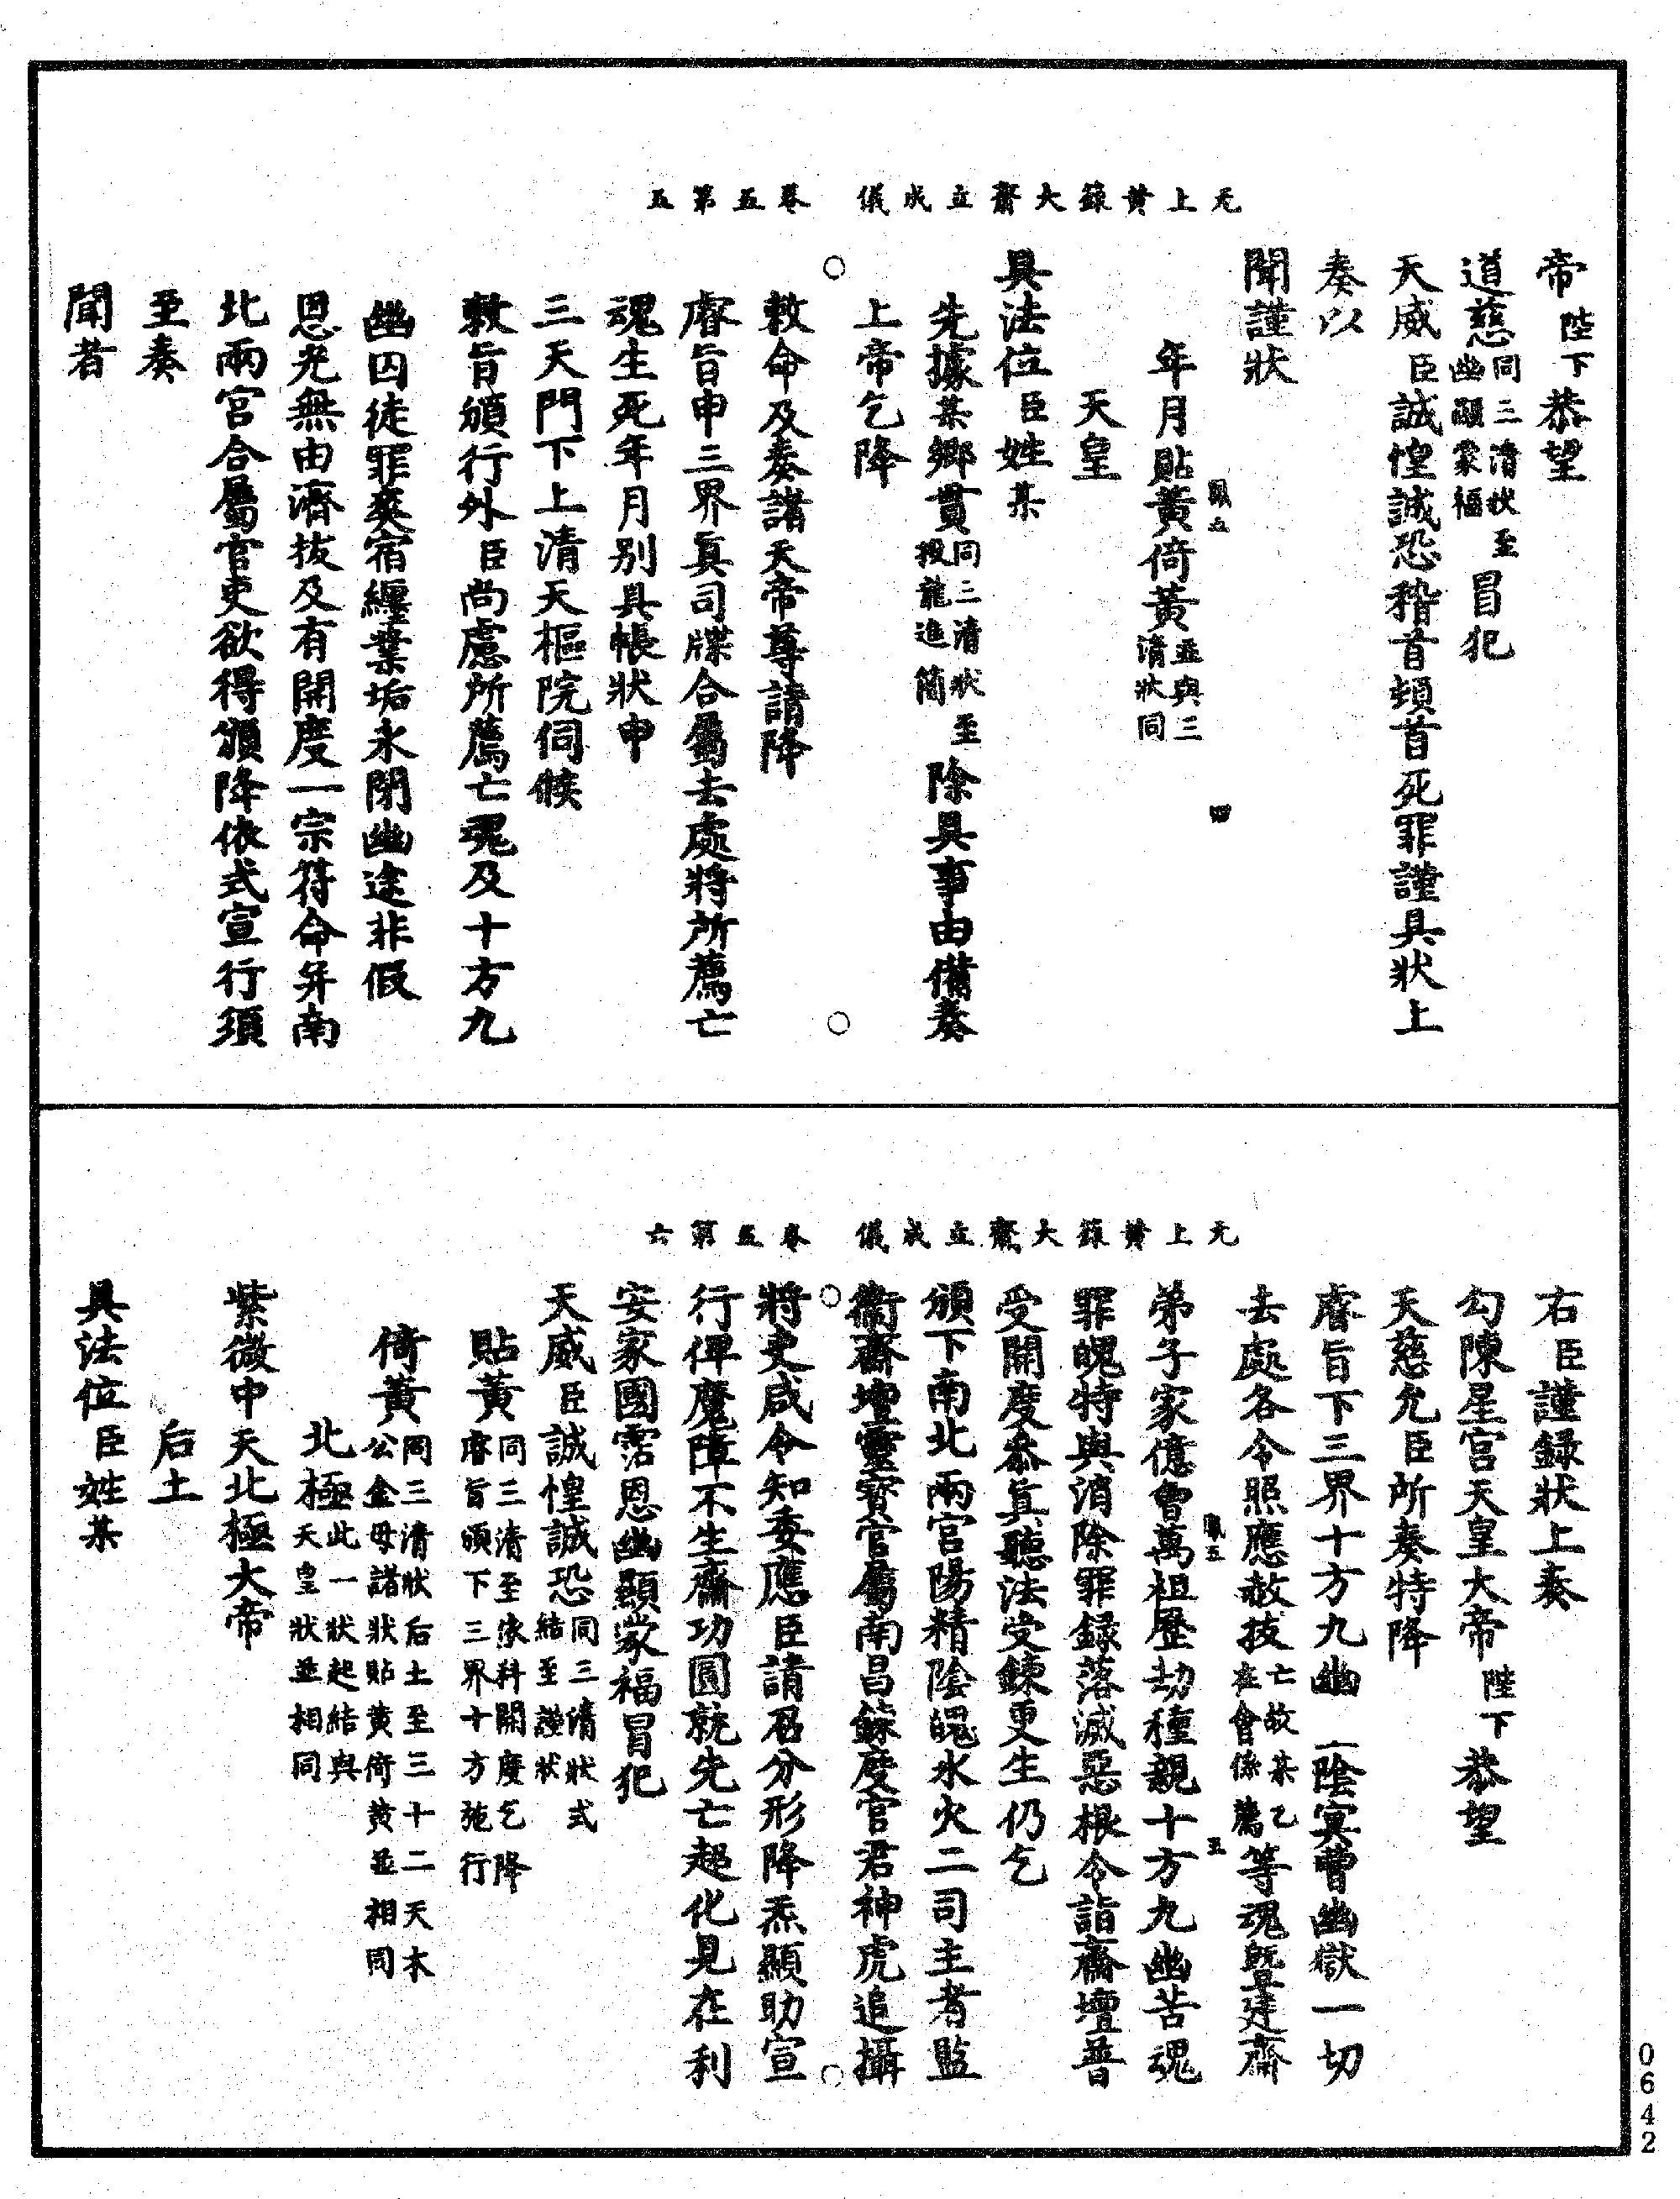 无上黃籙大齋立成儀　卷五第五
帝陛下恭望
道慈同三清狀至幽顯蒙福冒犯
天威臣誠惶誠恐稽首頓首死罪謹具狀上
奏以
聞謹狀
年月貼黃倚黃並與三清狀同
鳳五　四
天皇
具法位臣姓某
先據某鄉貫同三清狀至投龍進簡除具事由備奏
上帝乞降
敕命及奏諸天帝尊請降
睿旨申三界眞司牒合屬去處將所薦亡
魂生死年月別具帳狀申
三天門下上清天樞院伺候
敕旨頒行外臣尚慮所薦亡魂及十方九
幽囚徒罪爽宿纏業垢永閉幽途非假
恩光無由濟拔及有開度一宗符命并南
北兩宮合屬官吏欲得頒降依式宣行須
至奏
聞者
无上黃籙大齋立成儀　卷五第六
右臣謹錄狀上奏
勾陳星宮天皇大帝陛下恭望
天慈允臣所奏特降
睿旨下三界十方九幽一陰冥曹幽獄一切
去處各令照應赦拔亡故某乙在會係薦等魂曁建齋
弟子家億曾萬祖歷劫種親十方九幽苦魂
鳳五　五
罪魄特與消除罪録落滅惡根令詣齋壇普
受開度叅眞聽法受鍊更生仍乞
頒下南北兩宮陽精陰魄水火二司主者監
衞齋壇靈寶官屬南昌穌度官君神虎追攝
將吏咸令知委應臣請召分形降炁顯助宣
行俾魔障不生齋功圓就先亡超化見在利
安家國霑恩幽顯蒙福冒犯
天威臣誠惶誠恐同三清狀式結至謹狀
貼黃同三清至依科開度乞降睿旨頒下三界十方施行
倚黃同三清狀后土至三十二天木公金母諸狀貼黃倚黃並相同
北極此一狀起結與天皇狀並相同
紫微中天北極大帝
后土
具法位臣姓某
0642